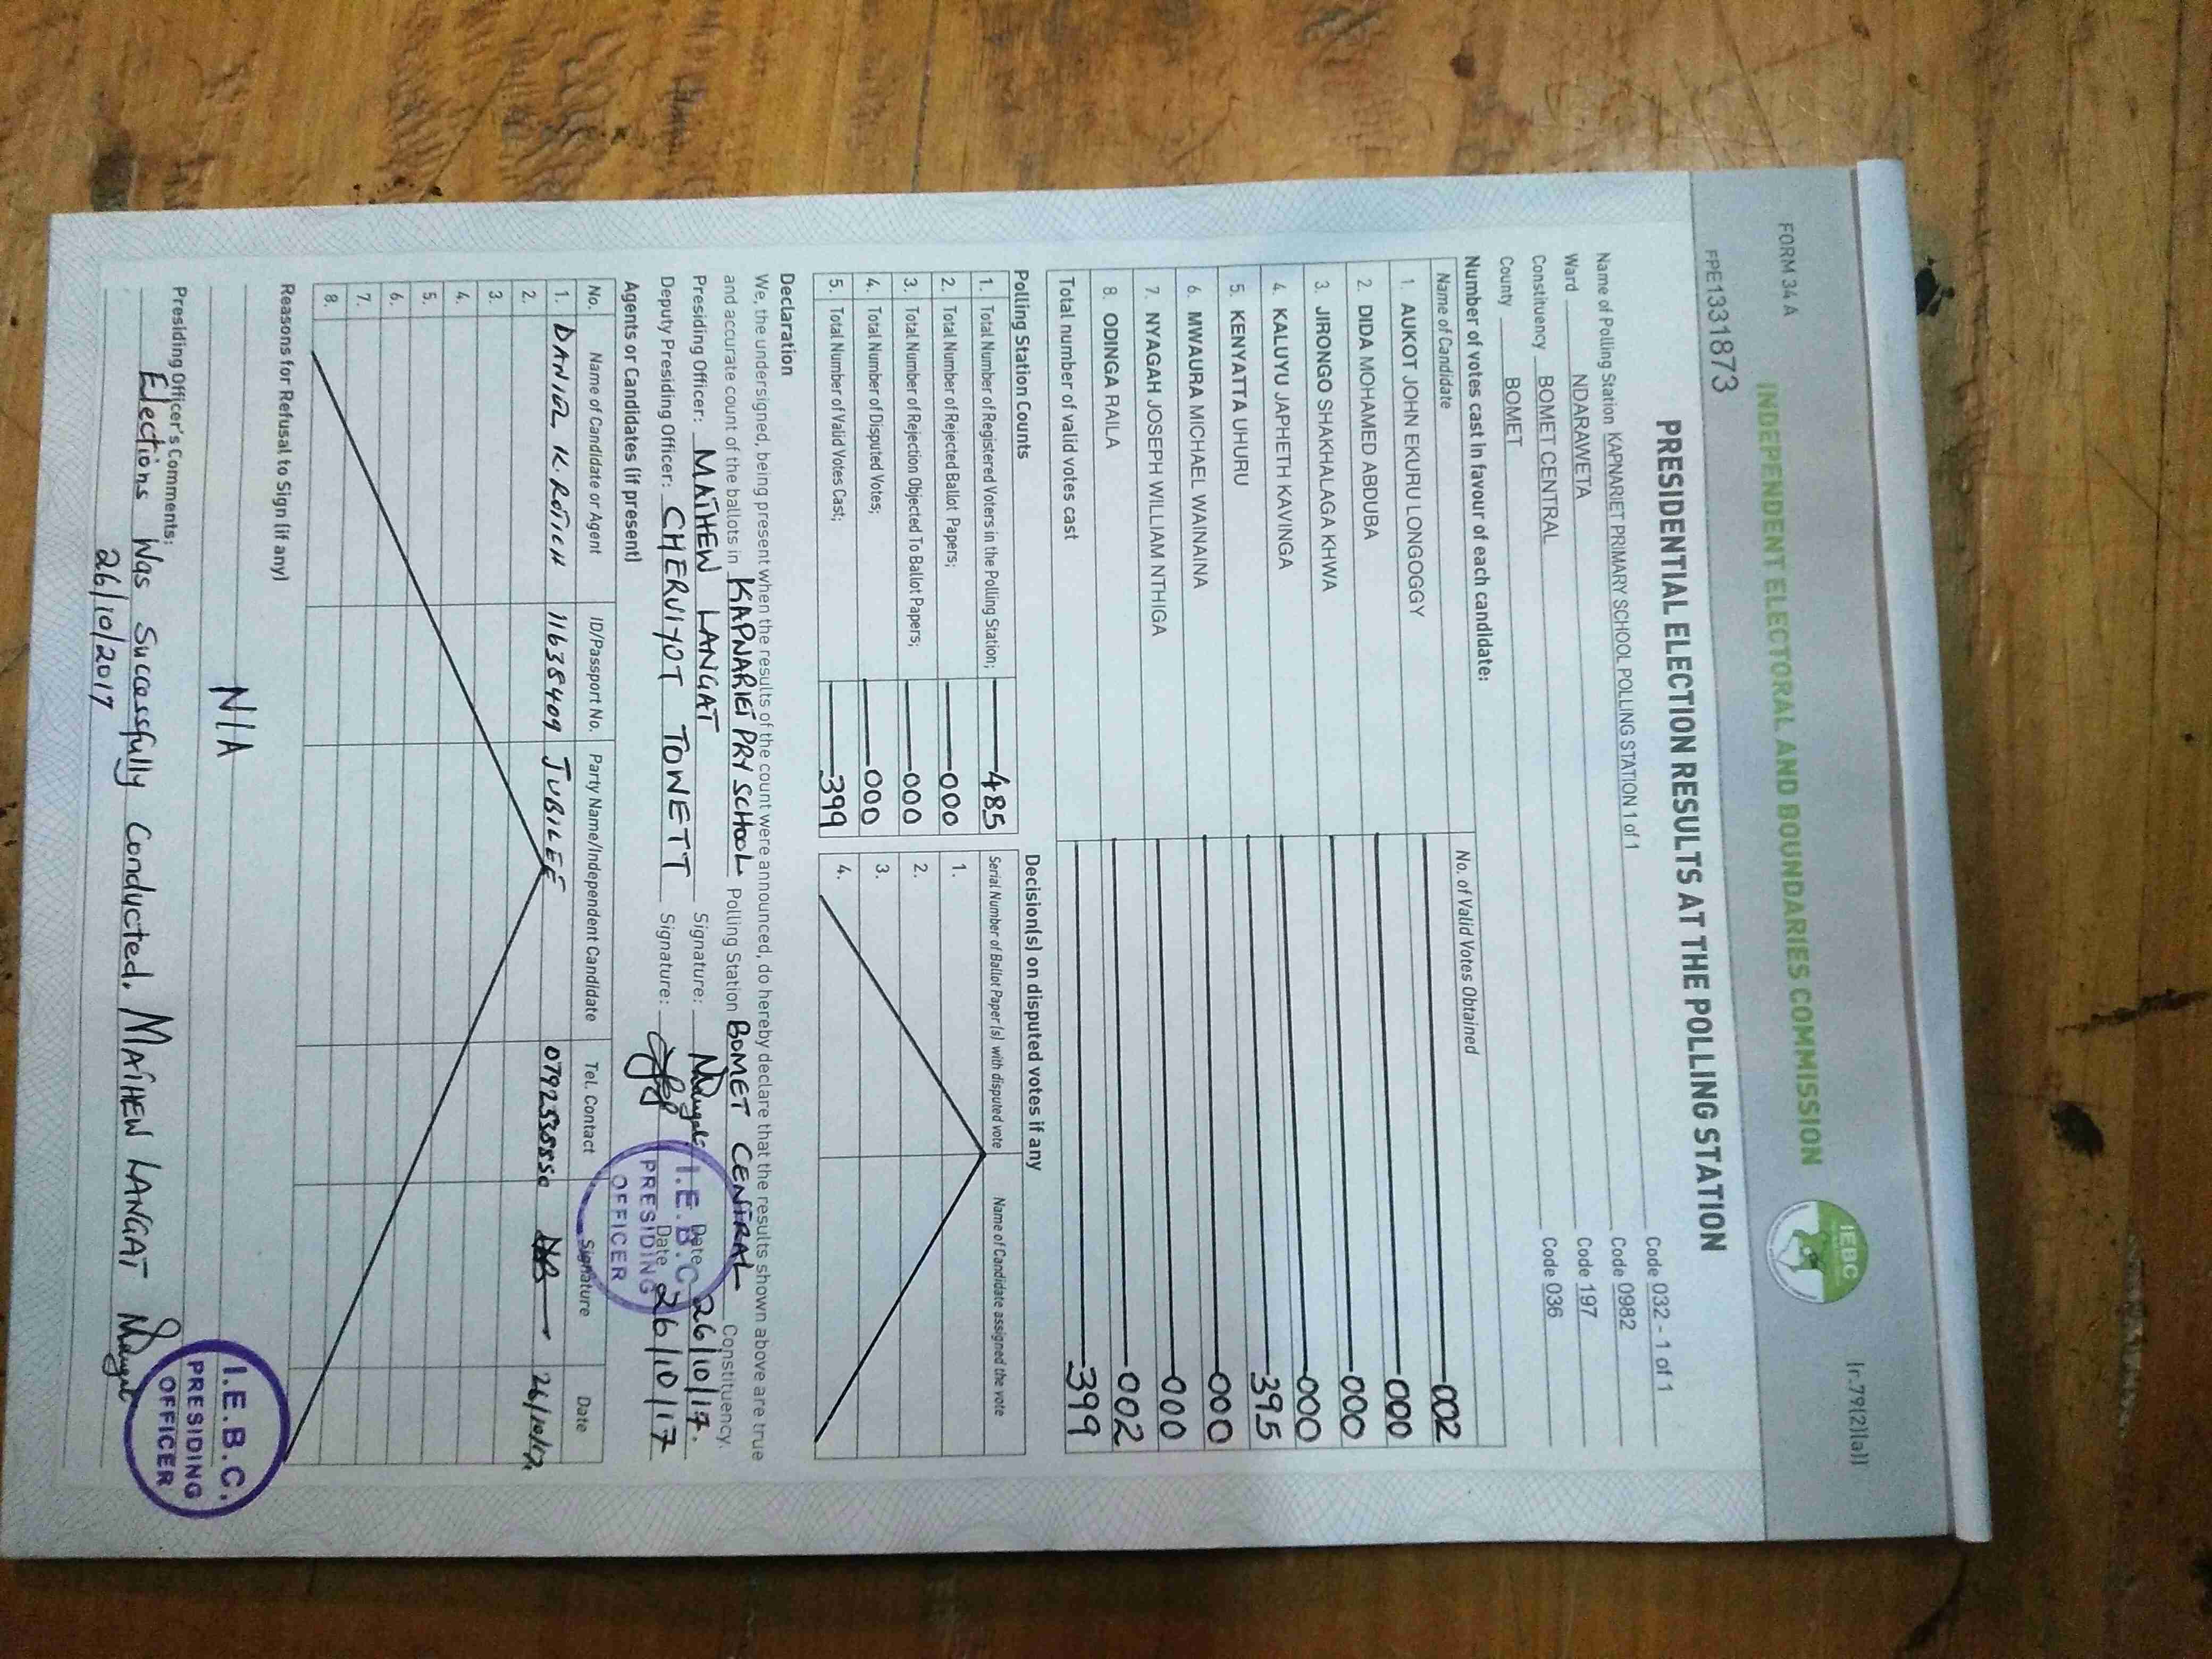 FORM 34 A
[r.79(2)(a)]
INDEPENDENT ELECTORAL AND BOUNDARIES COMMISSION
IEBC
FPE1331873
PRESIDENTIAL ELECTION RESULTS AT THE POLLING STATION
Name of Polling Station KAPNARIET PRIMARY SCHOOL POLLING STATION 1 of 1 Code 032 - 1 of 1
Ward NDARAWETA Code 0982
Constituency BOMET CENTRAL Code 197
County BOMET Code 036
Number of votes cast in favour of each candidate:
Name of Candidate No. of Valid Votes Obtained
1. AUKOT JOHN EKURU LONGOGGY 002
2. DIDA MOHAMED ABDUBA 000
3. JIRONGO SHAKHALAGA KHWA 000
4. KALUYU JAPHETH KAVINGA 000
5. KENYATTA UHURU 395
6. MWAURA MICHAEL WAINAINA 000
7. NYAGAH JOSEPH WILLIAM NTHIGA 000
8. ODINGA RAILA 002
Total number of valid votes cast 399
Polling Station Counts
1. Total Number of Registered Voters in the Polling Station; 485
2. Total Number of Rejected Ballot Papers; 000
3. Total Number of Rejection Objected To Ballot Papers; 000
4. Total Number of Disputed Votes; 000
5. Total Number of Valid Votes Cast; 399
Decision(s) on disputed votes if any
Serial Number of Ballot Paper (s) with disputed vote Name of Candidate assigned the vote
1.
2.
3.
4.
Declaration
We, the undersigned, being present when the results of the count were announced, do hereby declare that the results shown above are true
and accurate count of the ballots in KAPNARIET PRY SCHOOL Polling Station BOMET CENTRAL Constituency.
Presiding Officer: MATHEW LANGAT Signature: Date 26/10/17.
Deputy Presiding Officer: CHERUIYOT TOWETT Signature: Date 26/10/17
I.E.B.C.
PRESIDING
OFFICER
Agents or Candidates (if present)
No. Name of Candidate or Agent ID/Passport No. Party Name/Independent Candidate Tel. Contact Signature Date
1. DANIEL K. ROTICH 11638409 JUBILEE 26/10/17
2.
3.
4.
5.
6.
7.
8.
Reasons for Refusal to Sign (if any)
N/A
Presiding Officer's Comments:
Elections Was Successfully Conducted. MATHEW LANGAT
26/10/2017
I.E.B.C.
PRESIDING
OFFICER